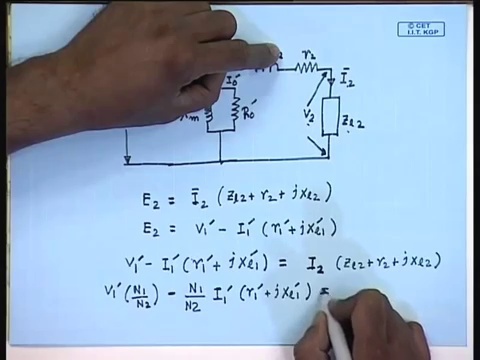 © CET
I.I.T. KGP
r₂
I₀′
Ī₂
Xm
R₀′
V₂
Z_l2
E₂ = Ī₂ (Z_l2 + r₂ + jx_l2)
E₂ = V₁′ - I₁′ (r₁′ + jx_l1′)
V₁′ - I₁′ (r₁′ + jx_l1′) = I₂ (Z_l2 + r₂ + jx_l2)
V₁′ (N₁/N₂) - N₁/N₂ I₁′ (r₁′ + jx_l1′) =